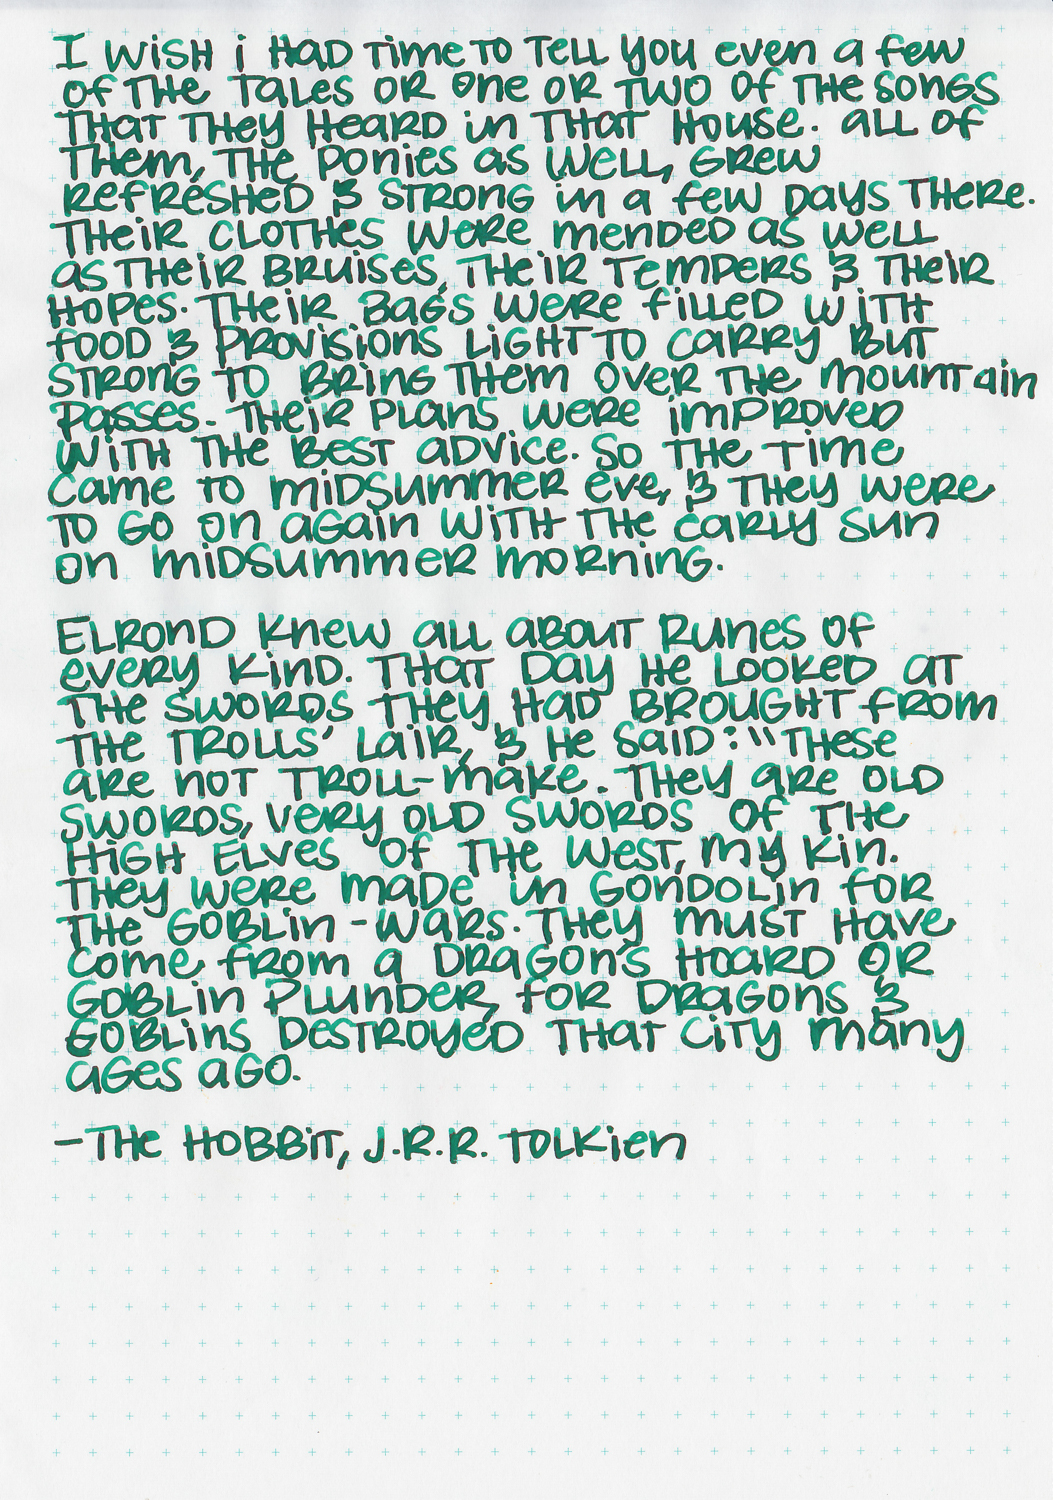 I wish i had time to tell you even a few
of the tales or one or two of the songs
that they heard in that house. All of
them, the ponies as well, grew
refreshed & strong in a few days there.
Their clothes were mended as well
as their bruises, their tempers & their
hopes. Their bags were filled with
food & provisions light to carry but
strong to bring them over the mountain
passes. Their plans were improved
with the best advice. So the time
came to midsummer eve, & they were
to go on again with the early sun
on midsummer morning.

Elrond knew all about runes of
every kind. That day he looked at
the swords they had brought from
the trolls' lair, & he said: "These
are not troll-make. They are old
swords, very old swords of the
High Elves of the West, my kin.
They were made in Gondolin for
the Goblin-wars. They must have
come from a dragon's hoard or
goblin plunder, for dragons &
goblins destroyed that city many
ages ago.

-The Hobbit, J.R.R. Tolkien